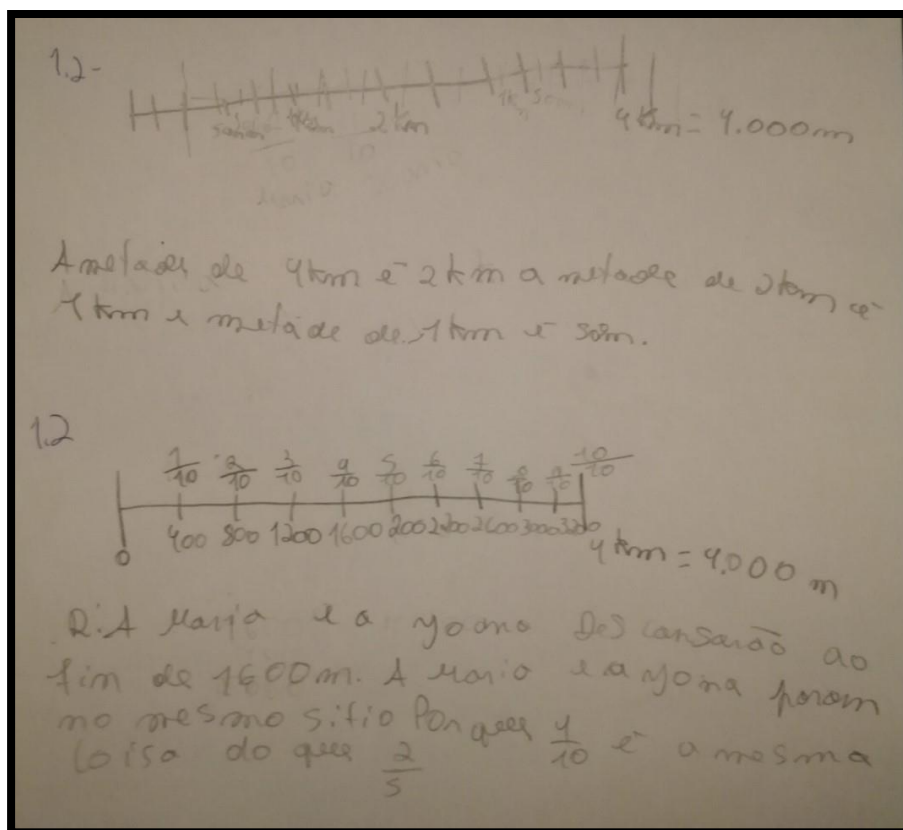 1.2-
2 km
4 km = 4.000m
A metade de 4km é 2km a metade de 2km é
1km e metade de 1km é 50m.
1.2
1/10 2/10 3/10 4/10 5/10 6/10 7/10 8/10 9/10 10/10
0 400 800 1200 1600 200 2200 2600 3000 3200
4 km = 4.000 m
R: A Maria e a Yoana Descansarão ao
fim de 1600m. A Maria e a Yoana param
no mesmo sitio Porque 4/10 é a mesma
coisa do que 2/5